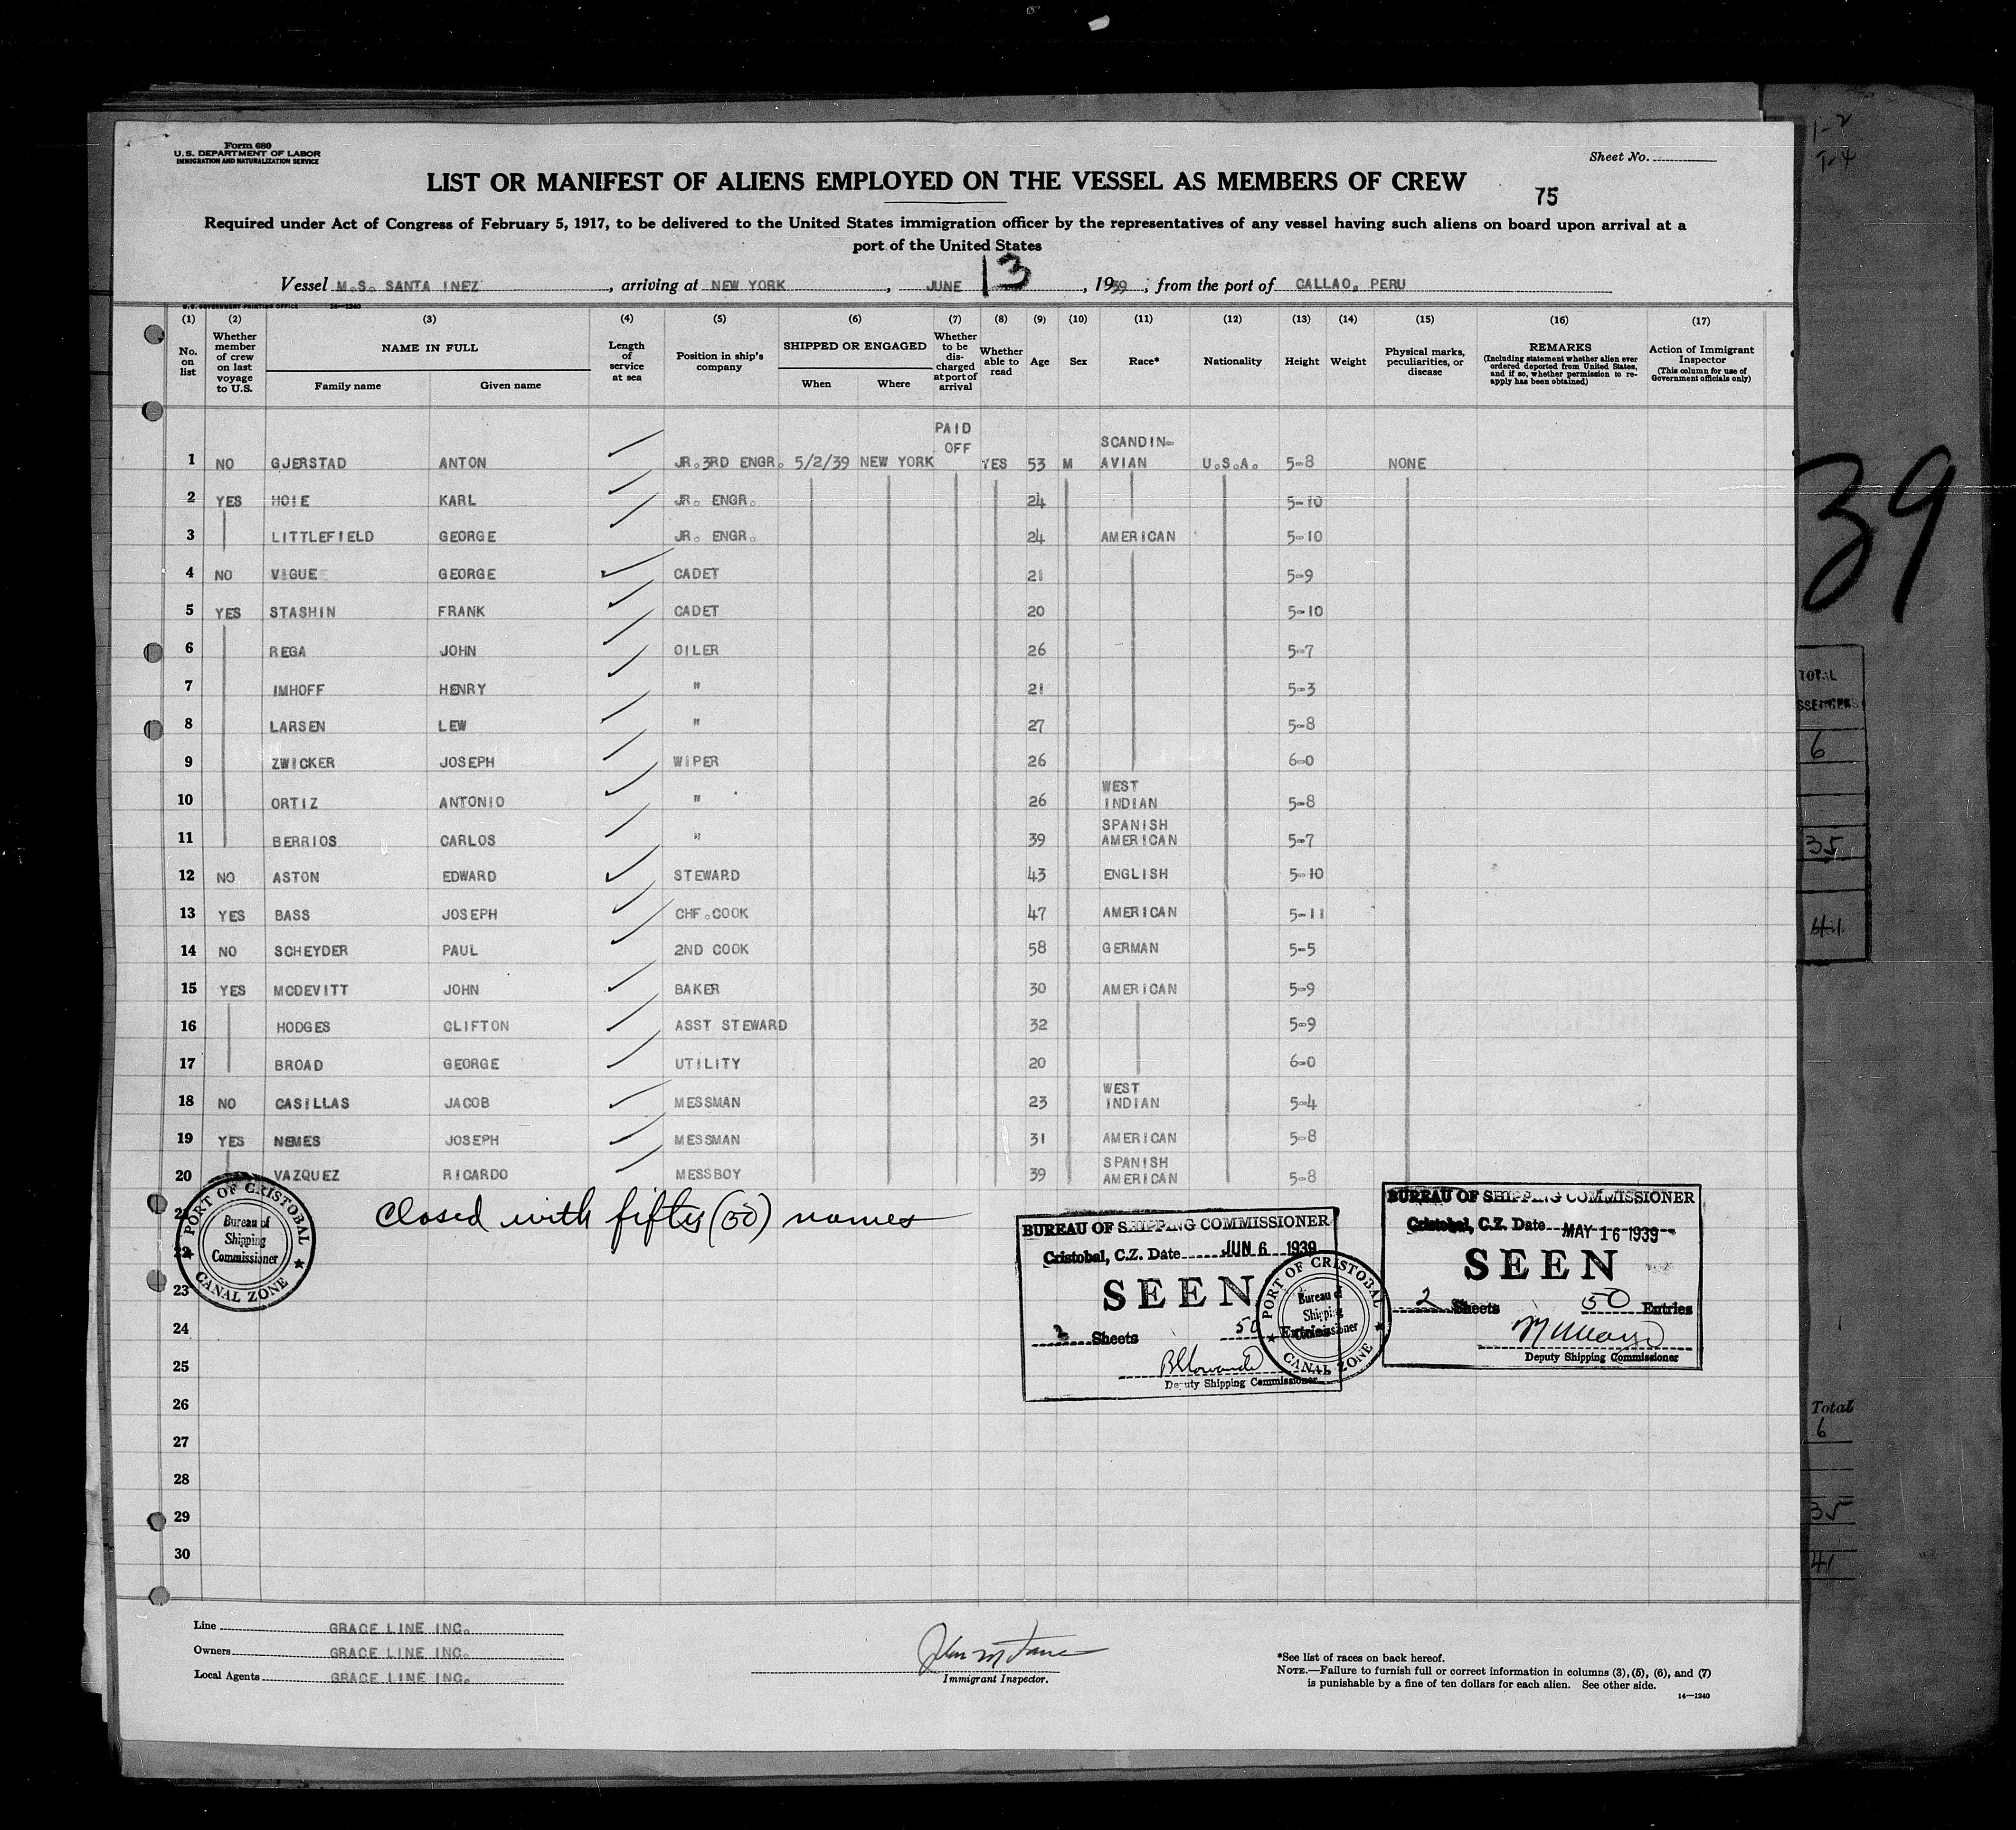 Form 680
U. S. DEPARTMENT OF LABOR
IMMIGRATION AND NATURALIZATION SERVICE
Sheet No.
LIST OR MANIFEST OF ALIENS EMPLOYED ON THE VESSEL AS MEMBERS OF CREW
75
Required under Act of Congress of February 5, 1917, to be delivered to the United States immigration officer by the representatives of any vessel having such aliens on board upon arrival at a
port of the United States
Vessel M.S. SANTA INEZ, arriving at NEW YORK, JUNE 13, 1939; from the port of CALLAO, PERU
U.S. GOVERNMENT PRINTING OFFICE 14—1240
(1) (2) (3) (4) (5) (6) (7) (8) (9) (10) (11) (12) (13) (14) (15) (16) (17)
No. on list
Whether member of crew on last voyage to U.S.
NAME IN FULL
Family name Given name
Length of service at sea
Position in ship's company
SHIPPED OR ENGAGED
When Where
Whether to be discharged at port of arrival
Whether able to read
Age
Sex
Race*
Nationality
Height
Weight
Physical marks, peculiarities, or disease
REMARKS
(Including statement whether alien ever ordered deported from United States, and if so, whether permission to reapply has been obtained)
Action of Immigrant Inspector
(This column for use of Government officials only)
1 NO GJERSTAD ANTON JR.3RD ENGR. 5/2/39 NEW YORK PAID OFF YES 53 M SCANDIN-AVIAN U.S.A. 5-8 NONE
2 YES HOIE KARL JR. ENGR. 24 5-10
3 LITTLEFIELD GEORGE JR. ENGR. 24 AMERICAN 5-10
4 NO VIGUE GEORGE CADET 21 5-9
5 YES STASHIN FRANK CADET 20 5-10
6 REGA JOHN OILER 26 5-7
7 IMHOFF HENRY " 21 5-3
8 LARSEN LEW " 27 5-8
9 ZWICKER JOSEPH WIPER 26 6-0
10 ORTIZ ANTONIO " 26 WEST INDIAN 5-8
11 BERRIOS CARLOS " 39 SPANISH AMERICAN 5-7
12 NO ASTON EDWARD STEWARD 43 ENGLISH 5-10
13 YES BASS JOSEPH CHF.COOK 47 AMERICAN 5-11
14 NO SCHEYDER PAUL 2ND COOK 58 GERMAN 5-5
15 YES MCDEVITT JOHN BAKER 30 AMERICAN 5-9
16 HODGES CLIFTON ASST STEWARD 32 5-9
17 BROAD GEORGE UTILITY 20 6-0
18 NO CASILLAS JACOB MESSMAN 23 WEST INDIAN 5-4
19 YES NEMES JOSEPH MESSMAN 31 AMERICAN 5-8
20 VAZQUEZ RICARDO MESSBOY 39 SPANISH AMERICAN 5-8
21
22
23
24
25
26
27
28
29
30
Closed with fifty (50) names
PORT OF CRISTOBAL
Bureau of
Shipping
Commissioner
CANAL ZONE
BUREAU OF SHIPPING COMMISSIONER
Cristobal, C.Z. Date JUN 6 1939
SEEN
2 Sheets 50 Entries
Deputy Shipping Commissioner
PORT OF CRISTOBAL
Bureau of
Shipping
Commissioner
CANAL ZONE
BUREAU OF SHIPPING COMMISSIONER
Cristobal, C.Z. Date MAY 16 1939
SEEN
2 Sheets 50 Entries
Deputy Shipping Commissioner
Line GRACE LINE INC.
Owners GRACE LINE INC.
Local Agents GRACE LINE INC.
Immigrant Inspector.
*See list of races on back hereof.
NOTE.—Failure to furnish full or correct information in columns (3), (5), (6), and (7)
is punishable by a fine of ten dollars for each alien. See other side.
14—1240
1-2
1-4
39
TOTAL
6
35
41
Total
6
35
41